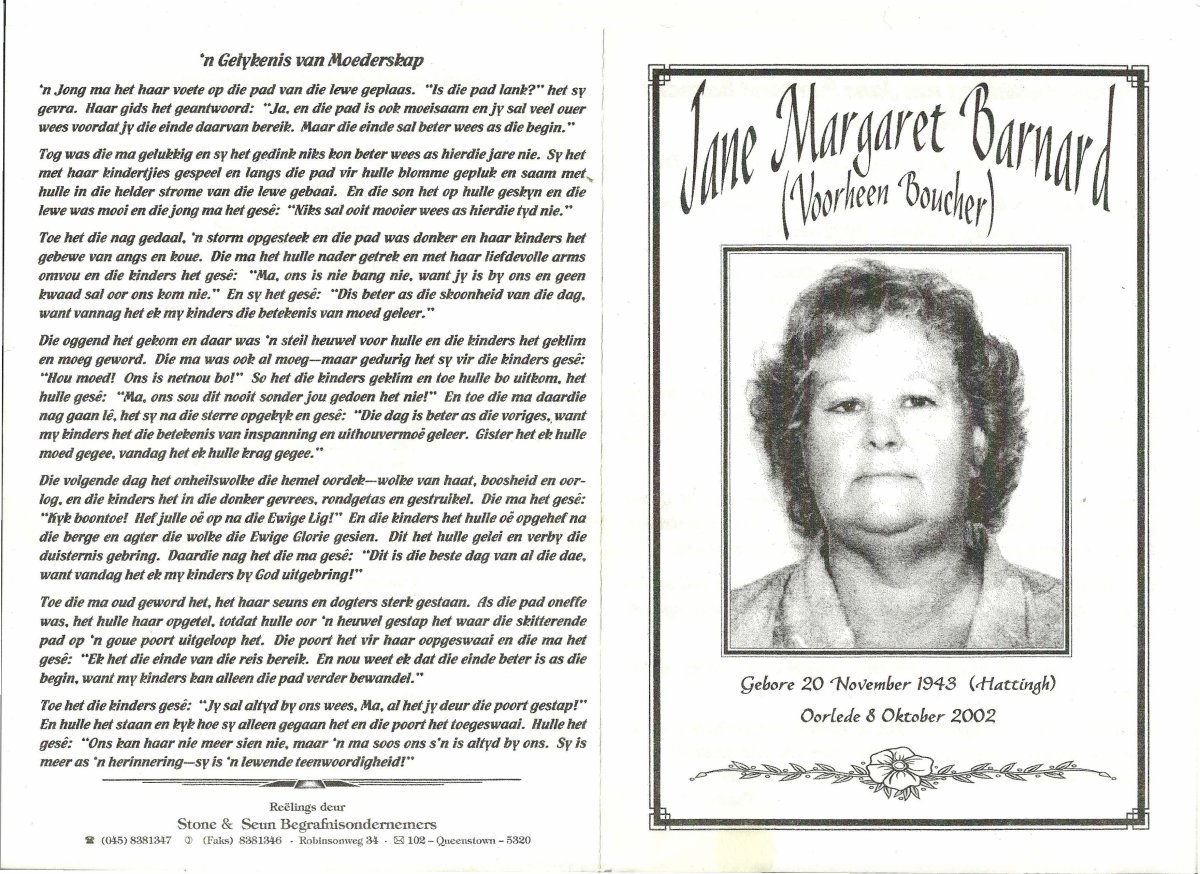 ‘n Gelykenis van Moederskap
‘n Jong ma het haar voete op die pad van die lewe geplaas. “Is die pad lank?” het sy
gevra. Haar gids het geantwoord: “Ja, en die pad is ook moeisaam en jy sal veel ouer
wees voordat jy die einde daarvan bereik. Maar die einde sal beter wees as die begin.”
Tog was die ma gelukkig en sy het gedink niks kon beter wees as hierdie jare nie. Sy het
met haar kindertjies gespeel en langs die pad vir hulle blomme gepluk en saam met
hulle in die helder strome van die lewe gebaai. En die son het op hulle geskyn en die
lewe was mooi en die jong ma het gesê: “Niks sal ooit mooier wees as hierdie tyd nie.”
Toe het die nag gedaal, ‘n storm opgesteek en die pad was donker en haar kinders het
gebewe van angs en koue. Die ma het hulle nader getrek en met haar liefdevolle arms
omvou en die kinders het gesê: “Ma, ons is nie bang nie, want jy is by ons en geen
kwaad sal oor ons kom nie.” En sy het gesê: “Dis beter as die skoonheid van die dag,
want vannag het ek my kinders die betekenis van moed geleer.”
Die oggend het gekom en daar was ‘n steil heuwel voor hulle en die kinders het geklim
en moeg geword. Die ma was ook al moeg—maar gedurig het sy vir die kinders gesê:
“Hou moed! Ons is netnou bo!” So het die kinders geklim en toe hulle bo uitkom, het
hulle gesê: “Ma, ons sou dit nooit sonder jou gedoen het nie!” En toe die ma daardie
nag gaan lê, het sy na die sterre opgekyk en gesê: “Die dag is beter as die voriges, want
my kinders het die betekenis van inspanning en uithouvermoë geleer. Gister het ek hulle
moed gegee, vandag het ek hulle krag gegee.”
Die volgende dag het onheilswolke die hemel oordek—wolke van haat, boosheid en oor-
log, en die kinders het in die donker gevrees, rondgetas en gestruikel. Die ma het gesê:
“Kyk boontoe! Hef julle oë op na die Ewige Lig!” En die kinders het hulle oë opgehef na
die berge en agter die wolke die Ewige Glorie gesien. Dit het hulle gelei en verby die
duisternis gebring. Daardie nag het die ma gesê: “Dit is die beste dag van al die dae,
want vandag het ek my kinders by God uitgebring!”
Toe die ma oud geword het, het haar seuns en dogters sterk gestaan. As die pad oneffe
was, het hulle haar opgetel, totdat hulle oor ‘n heuwel gestap het waar die skitterende
pad op ‘n goue poort uitgeloop het. Die poort het vir haar oopgeswaai en die ma het
gesê: “Ek het die einde van die reis bereik. En nou weet ek dat die einde beter is as die
begin, want my kinders kan alleen die pad verder bewandel.”
Toe het die kinders gesê: “Jy sal altyd by ons wees, Ma, al het jy deur die poort gestap!”
En hulle het staan en kyk hoe sy alleen gegaan het en die poort het toegeswaai. Hulle het
gesê: “Ons kan haar nie meer sien nie, maar ‘n ma soos ons s’n is altyd by ons. Sy is
meer as ‘n herinnering—sy is ‘n lewende teenwoordigheid!”
Reëlings deur
Stone & Seun Begrafnisondernemers
☎ (045) 8381347 ✆ (Faks) 8381346 · Robinsonweg 34 · ✉ 102 – Queenstown – 5320
Jane Margaret Barnard
(Voorheen Boucher)
Gebore 20 November 1943 (Hattingh)
Oorlede 8 Oktober 2002